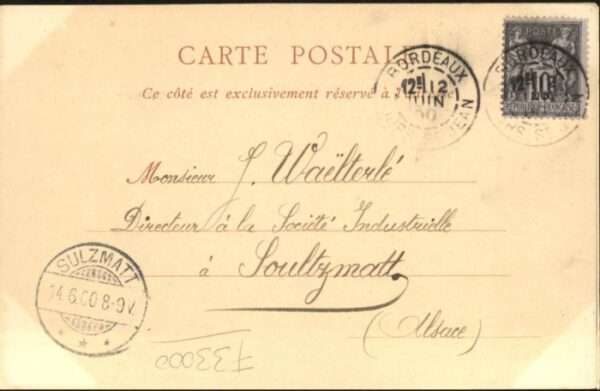 CARTE POSTALE
Ce côté est exclusivement réservé à
BORDEAUX
12 JUIN 00
JEAN
BORDEAUX
POSTE
10
REPUBLIQUE FRANÇAISE
Monsieur J. Waëlterlé
Directeur à la Société Industrielle
à Soultzmatt
(Alsace)
SULZMATT
14.6.00 8-9V.
733000